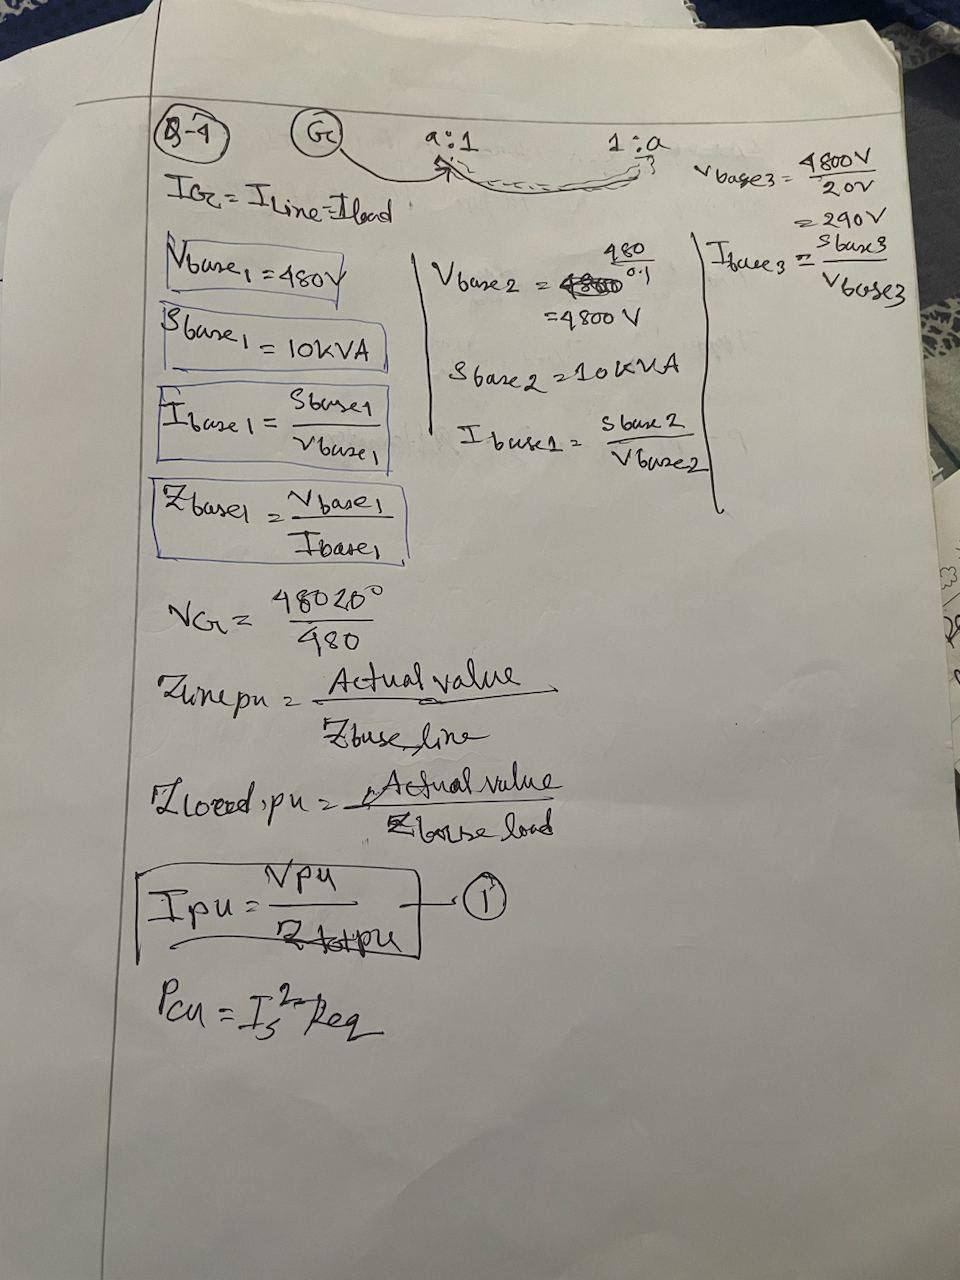 Q-4
G
a:1
1:a
IG = ILine = Iload
Vbase1 = 480V
Sbase1 = 10KVA
Ibase1 = Sbase1 / Vbase1
Zbase1 = Vbase1 / Ibase1
Vbase2 = 480 / 0.1
= 4800 V
Sbase2 = 10KVA
Ibase1 = Sbase2 / Vbase2
Vbase3 = 4800V / 20V
= 240V
Ibase3 = Sbase3 / Vbase3
VG = 480∠0° / 480
Zline pu = Actual value / Zbase, line
Zload, pu = Actual value / Zbase load
Ipu = Vpu / Ztotpu
1
Pcu = Is² Req